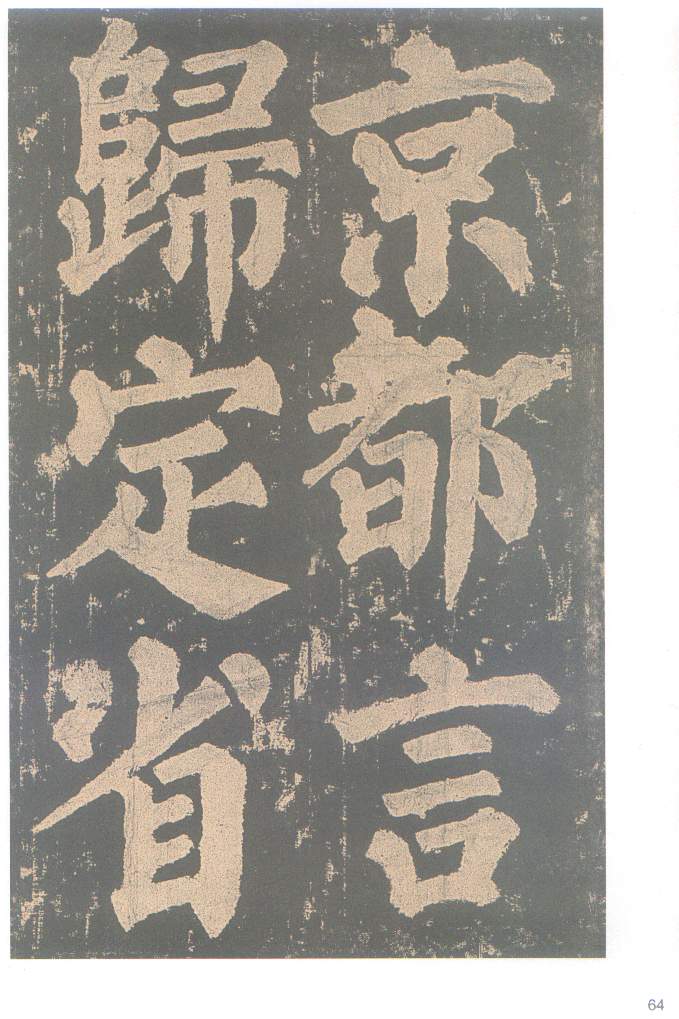 京都言
歸定省
64